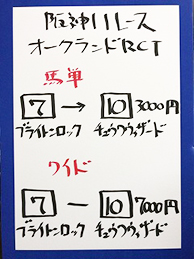 阪神11レース
オークランドRCT
馬単
7 → 10 3000円
ブライトンロック チュウワウィザード
ワイド
7 ― 10 7000円
ブライトンロック チュウワウィザード